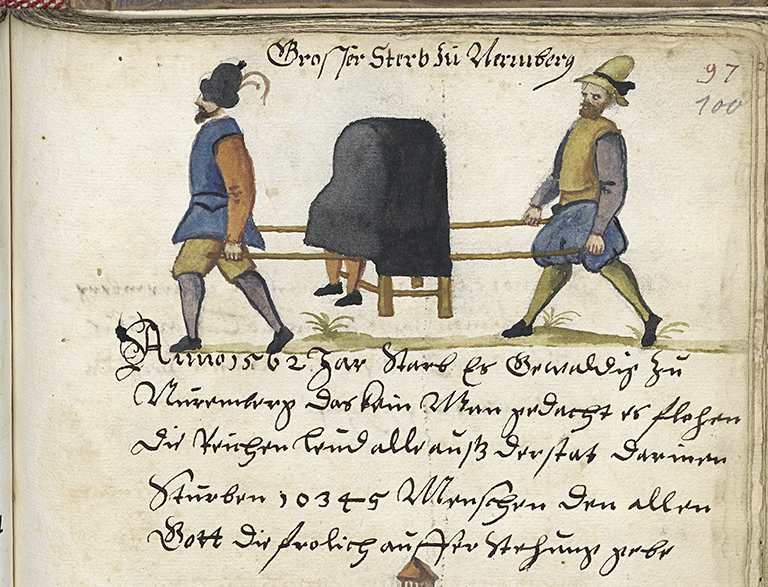 Grosser Sterb zu Nermberg
97
100
Anno 1562 Jar Starb Es Gewaldig zu
Nuremberg das kein Man gedacht es flohen
die Reichen leud alle auß der stat darinen
Sturben 10345 Menschen den allen
Gott die frolich aufferstehung gebe